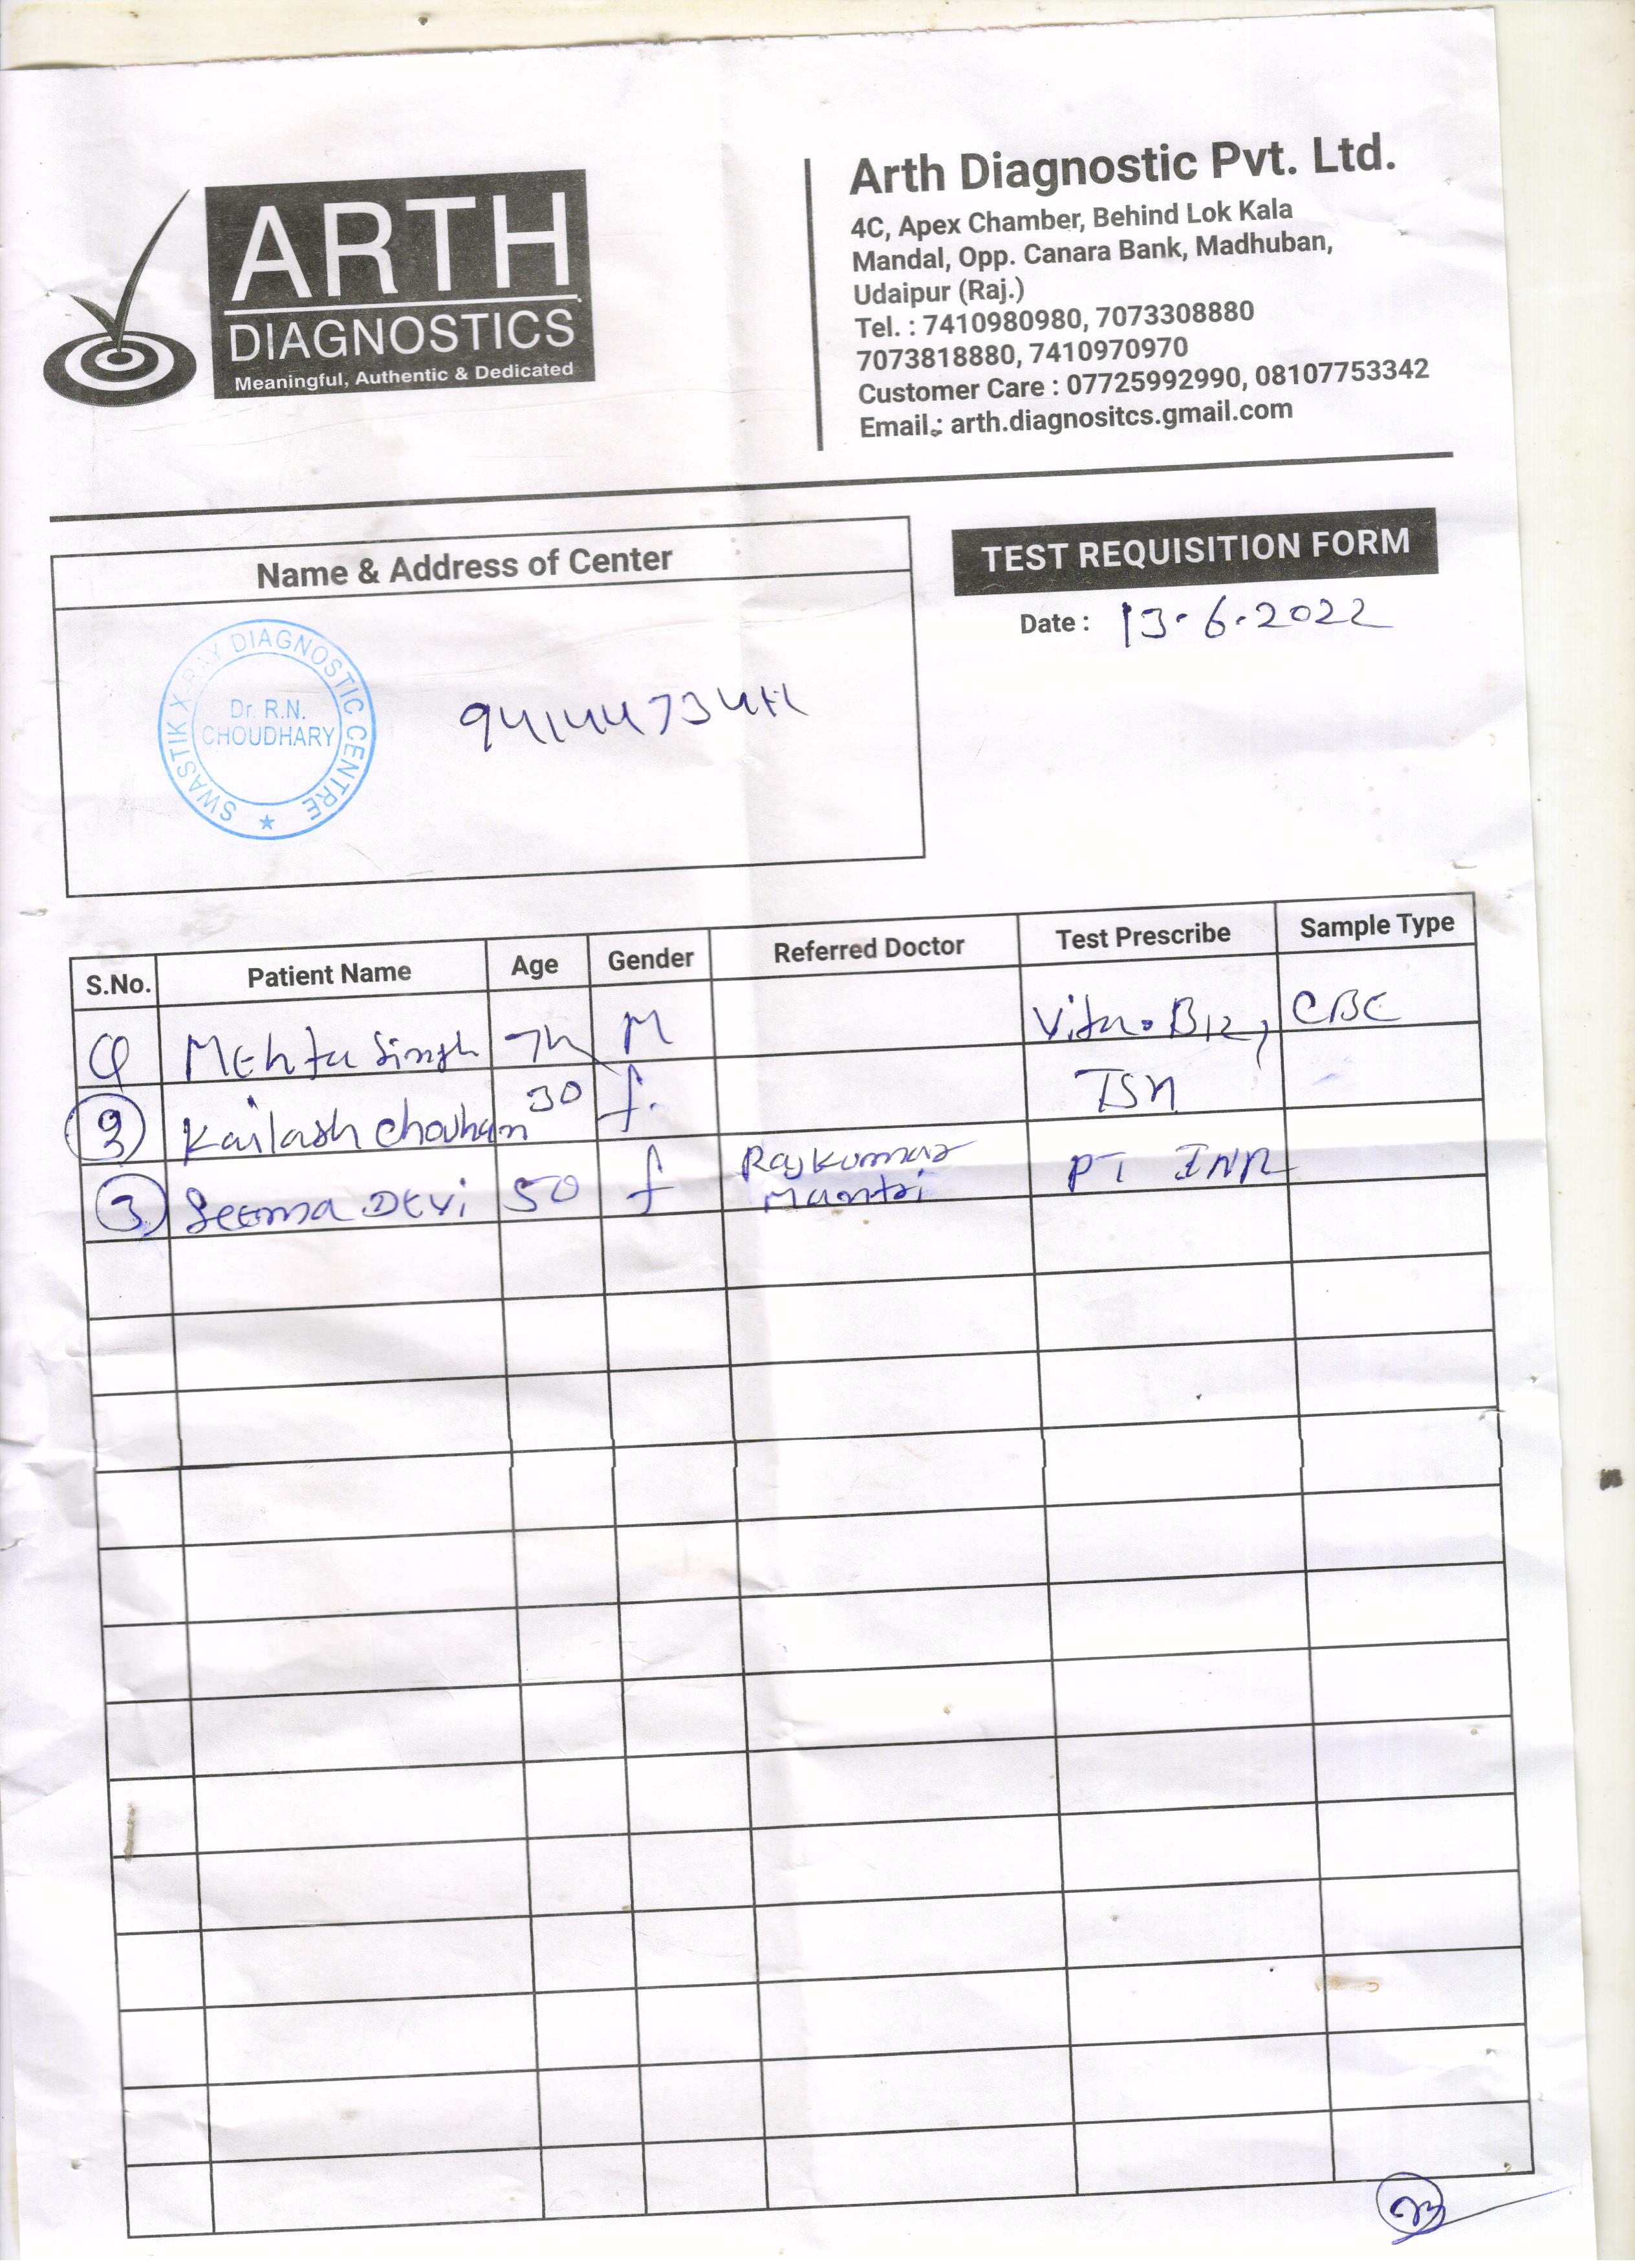 ARTH
DIAGNOSTICS
Meaningful, Authentic & Dedicated
Arth Diagnostic Pvt. Ltd.
4C, Apex Chamber, Behind Lok Kala
Mandal, Opp. Canara Bank, Madhuban,
Udaipur (Raj.)
Tel. : 7410980980, 7073308880
7073818880, 7410970970
Customer Care : 07725992990, 08107753342
Email.: arth.diagnositcs.gmail.com
Name & Address of Center
TEST REQUISITION FORM
Date : 13-6-2022
SWASTIK X-RAY DIAGNOSTIC CENTRE
Dr. R.N.
CHOUDHARY
S.No. Patient Name Age Gender Referred Doctor Test Prescribe Sample Type
Mehta Singh M Vita. B12, CBC
Kailash Chouhan 30 f.
3 Seema Devi 50 f Rajkumar Mantri PT INR